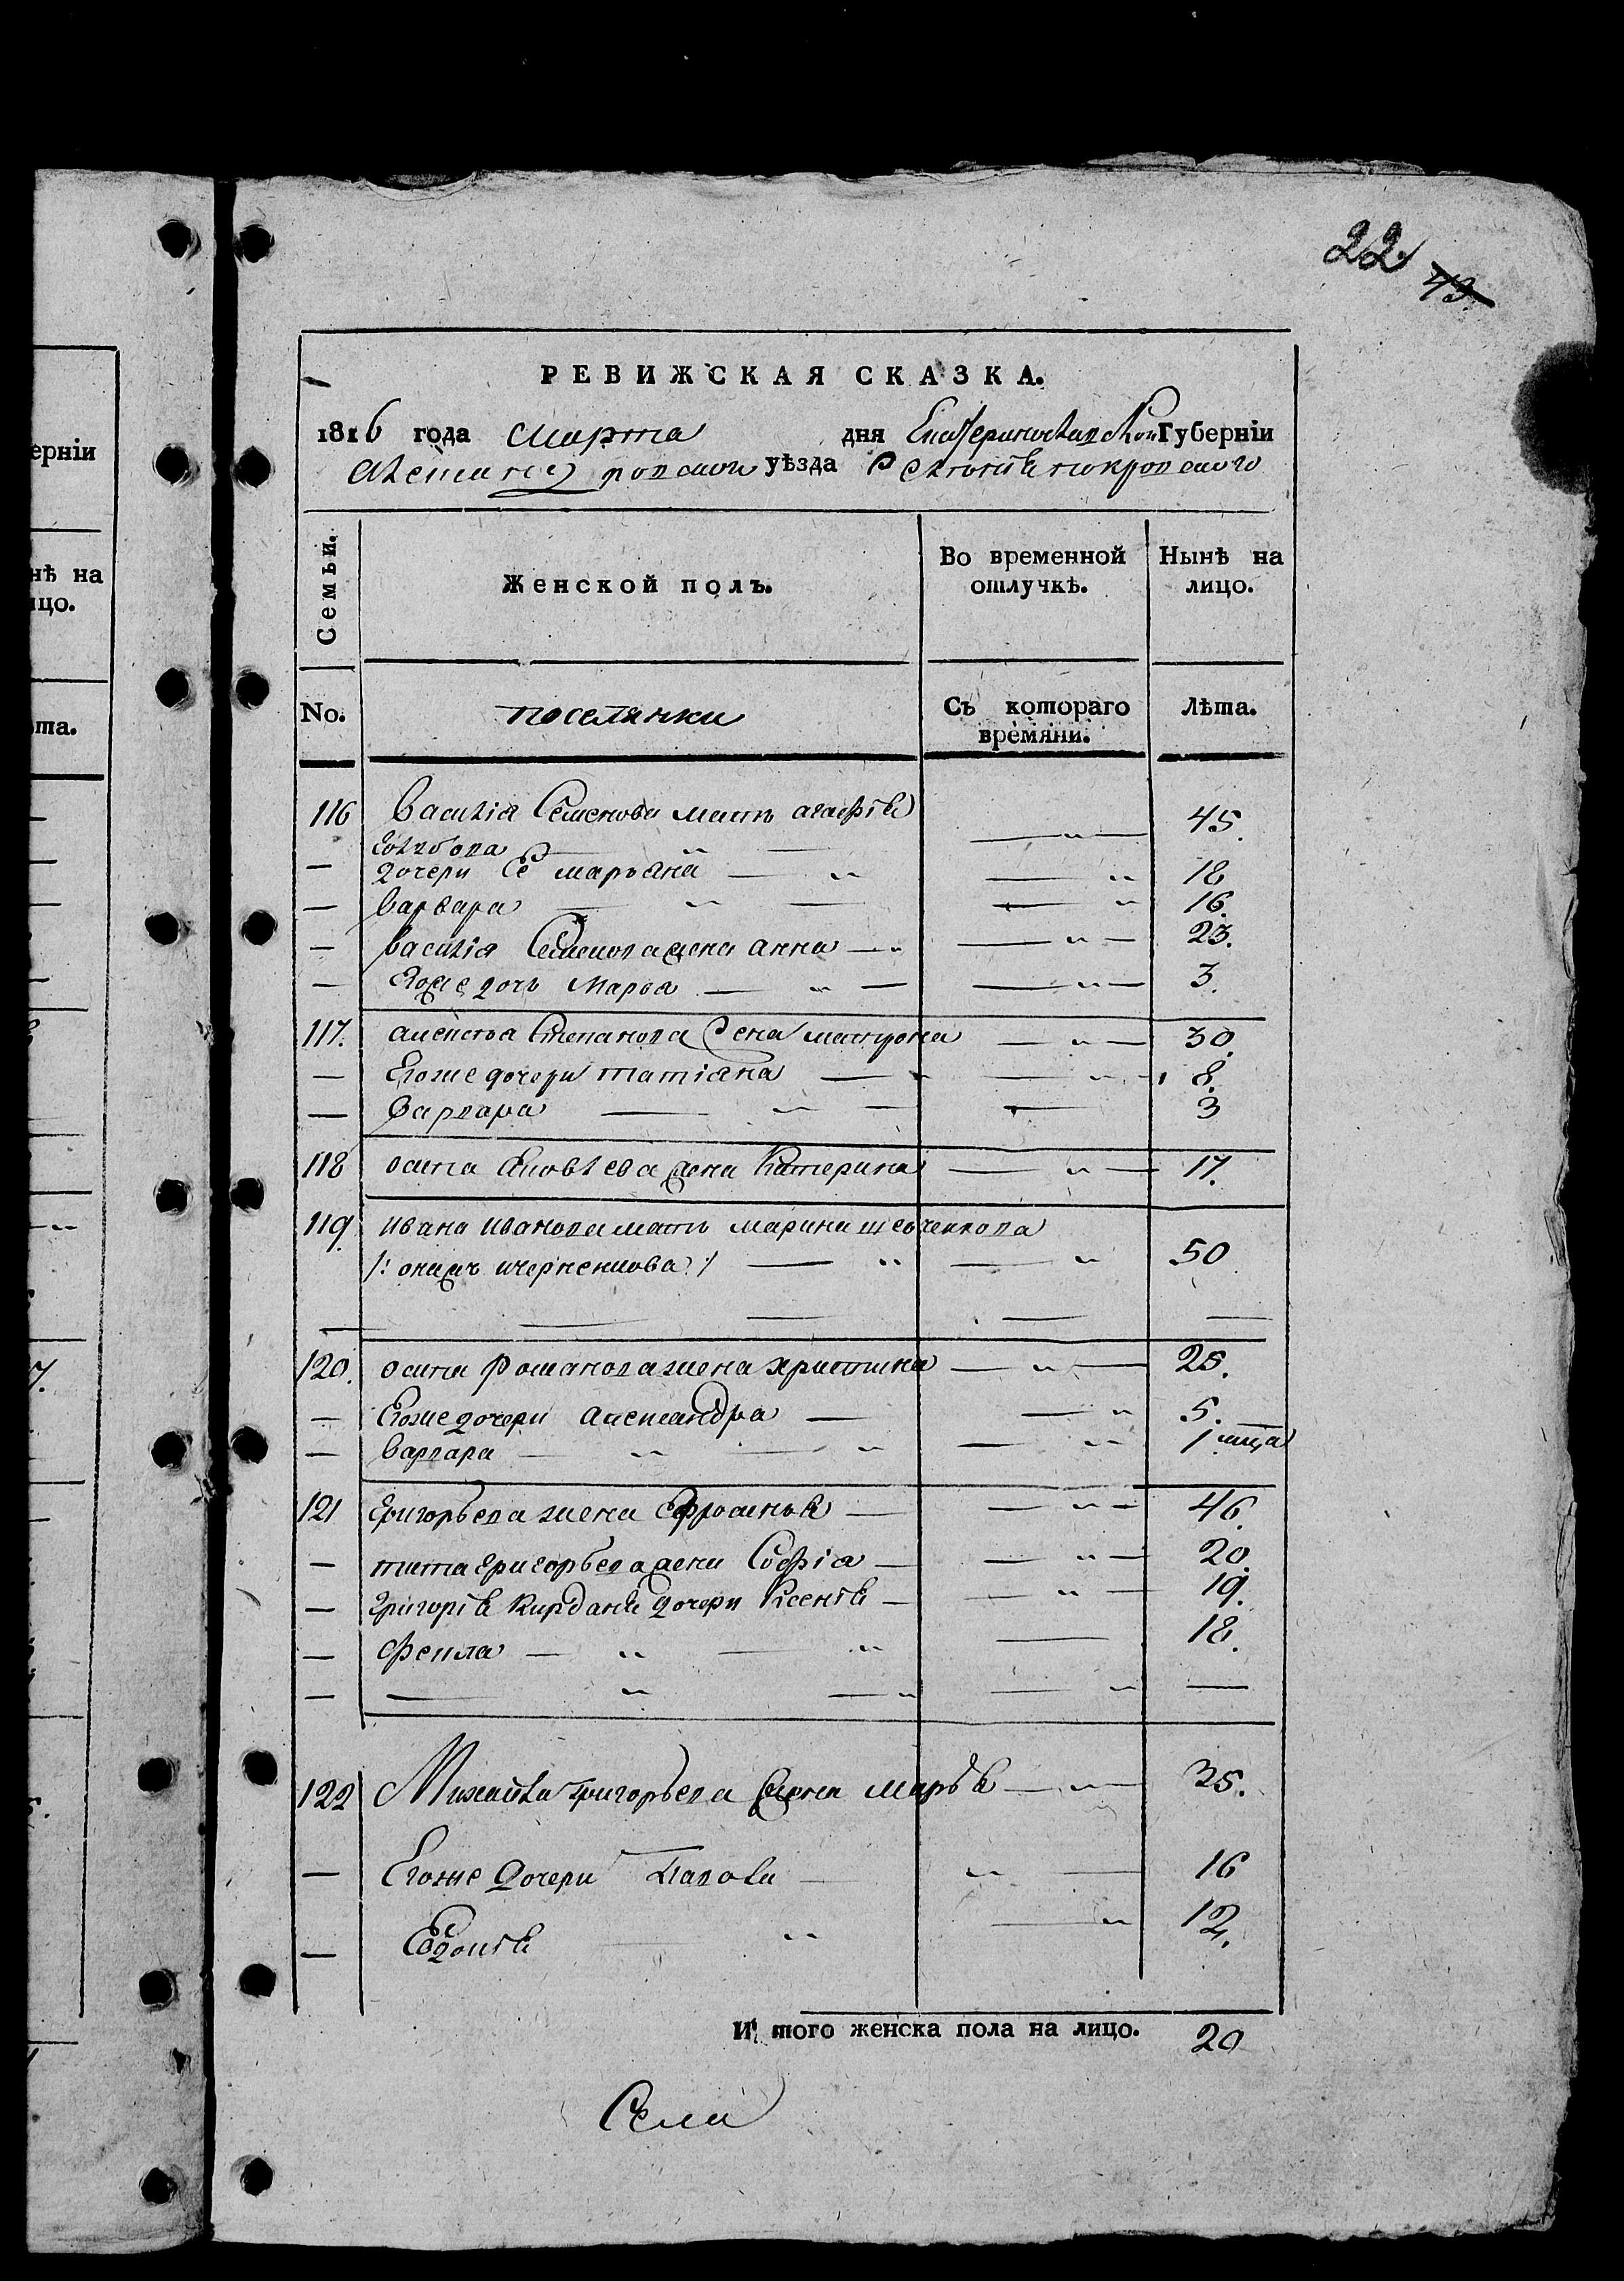 ерніи
нѣ на
ицо.
та.
7.
22 43
РЕВИЖСКАЯ СКАЗКА.
1816 года Марта дня Екатеринославской Губерніи
Александровского уѣзда Села Покровского
Семьи. Женской полъ. Во временной отлучкѣ. Нынѣ на лицо.
No. поселянки Съ котораго времяни. Лѣта.
116 Василія Семенова мать агафія
45.
— дочери Ее марьяна — „ — „ 18
— варвара — „ — — „ 16.
— василія Семенова жена анна — „ — „ — 23.
— Егоже дочь Марья — „ — — „ — 3.
117. алексея Степанова жена матрона — „ — 30.
— Егоже дочери татіана — — „ 8.
— Варвара — „ — — 3
118 осипа Яковлева жена Катерина — „ — 17.
119. ивана иванова мать марина шевченкова
/: онажъ черненкова :/ — „ — „ 50
120. осипа романова жена христина — „ — 25.
— Егоже дочери александра — — „ 5.
— варвара — „ — „ — „ 1 мца
121 григорьева жена Ефросинья — — „ — 46.
— тита григорьева жена Софіа — — „ — 20.
— григорія дочери Ксенія — — „ — 19.
— Фекла — „ — „ — 18.
— — „ — „ — „ —
122 Михайла григорьева жена марья — „ — 35.
— Егоже дочери — „ — 16
— Евдокія „ — „ 12.
И того женска пола на лицо. 20
Села